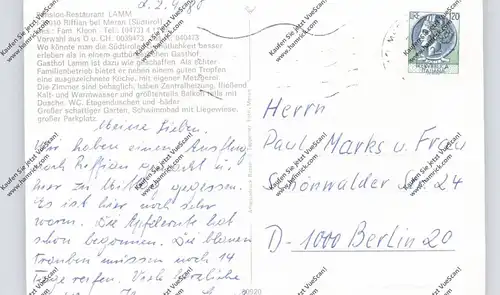 d. 2. 9.
Pension-Restaurant LAMM
Riffian bei Meran (Südtirol)
Bes.: Fam
Vorwahl aus D u. CH. 0039473 040473
Wo könnte man die Südtiroler besser
erleben als in einem gutbürgerlichen Gasthof.
Gasthof Lamm ist dazu wie geschaffen. Als echter
Familienbetrieb bietet er neben einem guten Tropfen
eine ausgezeichnete Küche, mit eigener Metzgerei.
Die Zimmer sind behaglich, haben Zentralheizung, fließend
Kalt- und Warmwasser und größtenteils Balkon
Dusche, WC. Etagenduschen und -bäder
Großer schattiger Garten, Schwimmbad mit Liegewiese.
großer Parkplatz.
120
Meine Lieben.
Wir haben einen Ausflug
nach Riffian gemacht u.
hier zu Mittag gegessen.
Es ist hier noch sehr
warm. Die Apfelernte hat
schon begonnen. Die blauen
Trauben müssen noch 14
Tage reifen. Viele herzliche
Herrn
Paul Marks u. Frau
Schönwalder Str 24
D-1000 Berlin 20
80520
Kaufen Sie jetzt VueScan!
www.hamrick.com